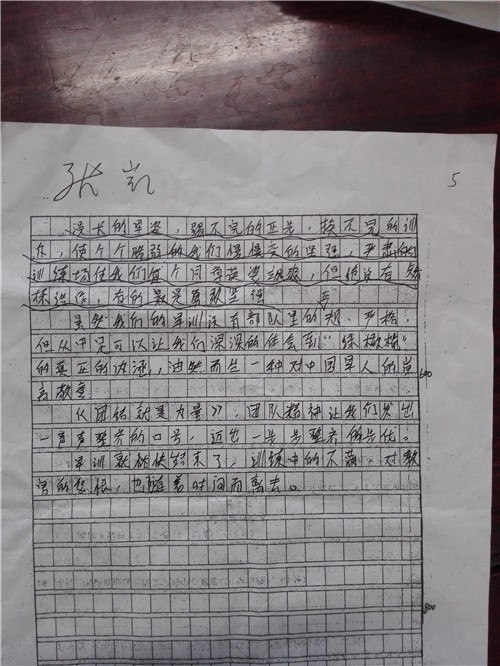 张凯
5
漫长的军姿，踢不完的正步，挨不完的训
斥，使个个脆弱的我们慢慢变的坚强，严肃的
训练场使我们每个同学，但绝没有
，有的最是勇敢坚强
虽然我们的军训没有部队里的规、严格，
但从中是可以让我们深深的体会到“绿橄榄”
的真正的内涵，油然而生一种对中国军人的崇
高敬意
600
《团结就是力量》，团队精神让我们发出
一声声整齐的口号，迈出一步步整齐的步伐。
军训就被快结束了，训练中的不满，对教
官的怨恨，也随着时间而离去。
800